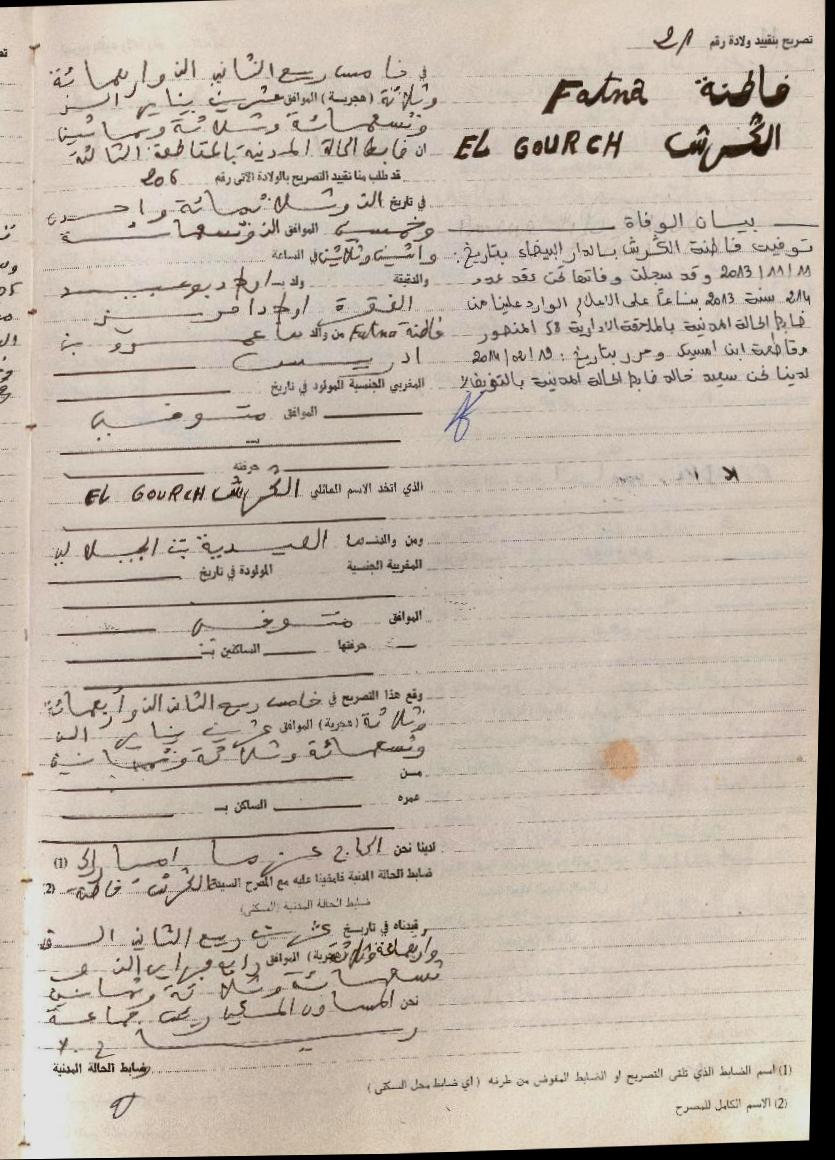 تصريح بتقييد ولادة رقم 21
فاطنة Fatna
الگرش EL GOURCH
بيان الوفاة
توفيت فاطنة الگرش بالدار البيضاء بتاريخ:
2013/11/11 وقد سجلت وفاتها في عقد عدد
214 سنة 2013 بناءا على الاعلام الوارد علينا من
ضابط الحالة المدنية بالملحقة الادارية 58
مقاطعة ابن امسيك وحرر بتاريخ: 2014/02/19
لدينا نحن سعيد خالد ضابط الحالة المدنية بالتفويض
في خامس ربيع الثاني الف واربعمائة
وثلاثة (هجرية) الموافق عشرين يناير الف
وتسعمائة وثلاثة وثمانين
ان ضابط الحالة المدنية بالمقاطعة الثالثة
قد طلب منا تقييد التصريح بالولادة الآتي رقم 206
في تاريخ الف وثلاثمائة واحدى
وخمسين الموافق الف وتسعمائة
واثنين وثلاثين في الساعة
والدقيقة ولد بـ اولاد بوعبيد
الفقرة اولاد امريز
فاطنة Fatna من والدها عمرو بن
ادريس
المغربي الجنسية المولود في تاريخ
الموافق متوفى
حرفته
الذي اتخد الاسم العائلي الگرش EL GOURCH
ومن والدتها الصيدية بنت الجيلالي
المغربية الجنسية المولودة في تاريخ
الموافق متوفى
حرفتها الساكنين بـ
وقع هذا التصريح في خامس ربيع الثاني الف واربعمائة
وثلاثة (هجرية) الموافق عشرين يناير الف
وتسعمائة وثلاثة وثمانين
من
عمره الساكن بـ
لدينا نحن الحاج (1)
ضابط الحالة المدنية فامضينا عليه مع المصرح السيدة الگرش فاطنة (2)
ضابط الحالة المدنية (السكنى)
وقيدناه في تاريخ عشرين ربيع الثاني الف
واربعمائة وثلاثة (هجرية) الموافق رابع فبراير الف و
تسعمائة وثلاثة وثمانين
نحن
ضابط الحالة المدنية
(1) اسم الضابط الذي تلقى التصريح او الضابط المفوض من طرفه (اي ضابط محل السكنى)
(2) الاسم الكامل للمصرح